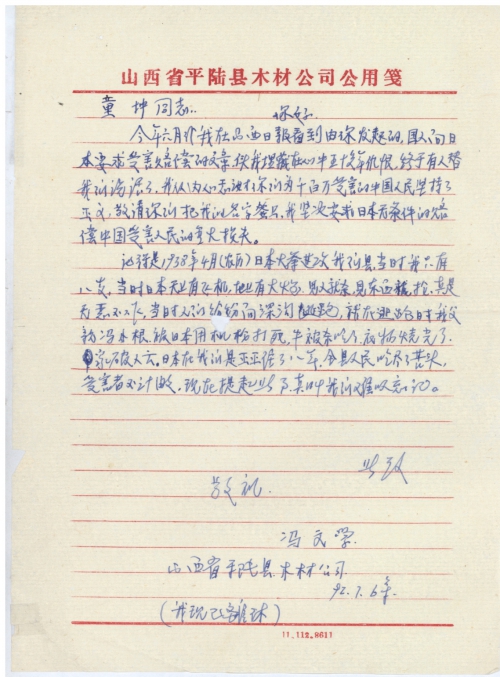 山西省平陆县木材公司公用笺
童坤同志：
你好
今年六月份我在山西日报看到由你发起的，国人向日
本要求受害赔偿的文章，使我埋藏在心中五十多年仇恨，终于有人替
我们说话了，我从内心感谢你们为千百万受害的中国人民坚持了
正义，敬请你们把我的名字签上，我坚决要求日本无条件的赔
偿中国受害人民的重大损失。
记得是1938年4月(农历)日本大举进攻我们县，当时我只有
八岁，当时日本天上有飞机，地上有大炮，见人就杀，见东西就抢，真是
无恶不作，当时人们纷纷向深沟逃跑，就在逃跑时我父
亲冯水根，被日本用机枪打死，牛被杀吃了，衣物烧完了，
家破人亡。日本在我们县正正住了八年，全县人民吃尽了苦头，
受害者不计其数，现在提起此事，真叫我们难以忘记。
此致
敬礼
冯文学
山西省平陆县木材公司
92.7.6
(我现已离休)
11.112.8611